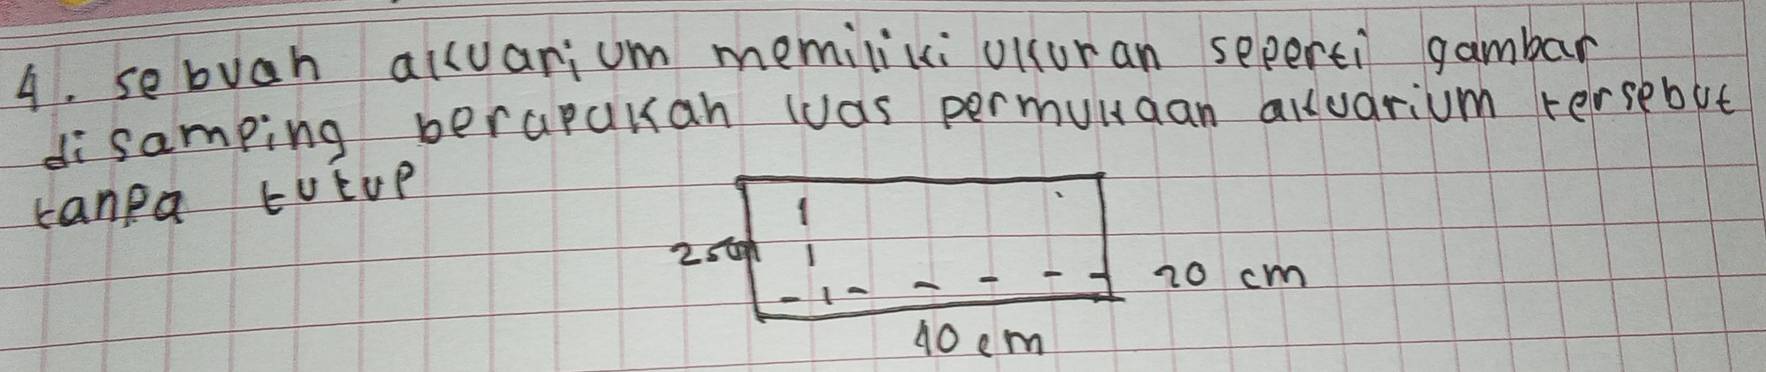 4. sebuah akuarium memiliki ukuran seperti gambar
disamping berapakah luas permukaan akuarium tersebut
tanpa tutup
25cm
20 cm
40 cm